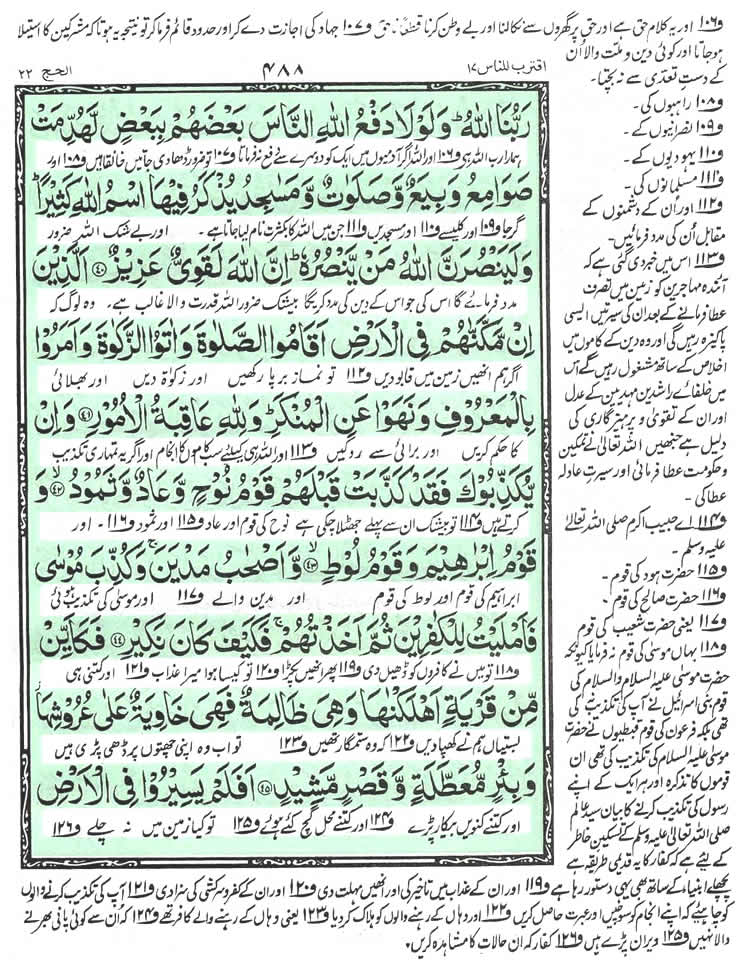 و۱۰۶ اور یہ کلام حق ہے اور حق پر گھروں سے نکالنا اور بے وطن کرنا قطعاً نا حق و۱۰۷ جہاد کی اجازت دے کر اور حدود قائم فرما کر تو نتیجہ یہ ہوتا کہ مشرکین کا استیلا
ہو جاتا اور کوئی دین و ملت والا ان
کے دست تعدی سے نہ بچتا۔
اقترب للناس ۱۷
۴۸۸
الحج ۲۲
رَبُّنَا اللّٰهُ ؕ وَ لَوْ لَا دَفْعُ اللّٰهِ النَّاسَ بَعْضَهُمْ بِبَعْضٍ لَّهُدِّمَتْ
ہمارا رب اللہ ہی و۱۰۶ اور اللہ اگر آدمیوں میں ایک کو دوسرے سے دفع نہ فرماتا و۱۰۷ تو ضرور ڈھا دی جاتیں خانقاہیں و۱۰۸ اور
صَوَامِعُ وَ بِیَعٌ وَّ صَلَوٰتٌ وَّ مَسٰجِدُ یُذْكَرُ فِیْهَا اسْمُ اللّٰهِ كَثِیْرًا ؕ
گرجا و۱۰۹ اور کلیسے و۱۱۰ اور مسجدیں و۱۱۱ جن میں اللہ کا بکثرت نام لیا جاتا ہے ۔ اور بے شک اللہ ضرور
وَ لَیَنْصُرَنَّ اللّٰهُ مَنْ یَّنْصُرُهٗ ؕ اِنَّ اللّٰهَ لَقَوِیٌّ عَزِیْزٌ ﴿۴۰﴾ اَلَّذِیْنَ
مدد فرمائے گا اس کی جو اس کے دین کی مدد کریگا بیشک ضرور اللہ قدرت والا غالب ہے۔ وہ لوگ کہ
اِنْ مَّكَّنّٰهُمْ فِی الْاَرْضِ اَقَامُوا الصَّلٰوةَ وَ اٰتَوُا الزَّكٰوةَ وَ اَمَرُوْا
اگر ہم انھیں زمین میں قابو دیں و۱۱۲ تو نماز برپا رکھیں اور زکوٰۃ دیں اور بھلائی
بِالْمَعْرُوْفِ وَ نَهَوْا عَنِ الْمُنْكَرِ ؕ وَ لِلّٰهِ عَاقِبَةُ الْاُمُوْرِ ﴿۴۱﴾ وَ اِنْ
کا حکم کریں اور برائی سے روکیں و۱۱۳ اور اللہ ہی کیلئے سب کاموں کا انجام اور اگر یہ تمہاری تکذیب
یُّكَذِّبُوْكَ فَقَدْ كَذَّبَتْ قَبْلَهُمْ قَوْمُ نُوْحٍ وَّ عَادٌ وَّ ثَمُوْدُ ﴿۴۲﴾ وَ
کرتے ہیں و۱۱۴ تو بیشک ان سے پہلے جھٹلا چکی ہے نوح کی قوم اور عاد و۱۱۵ اور ثمود و۱۱۶ ۔ اور
قَوْمُ اِبْرٰهِیْمَ وَ قَوْمُ لُوْطٍ ﴿۴۳﴾ وَّ اَصْحٰبُ مَدْیَنَ ۚ وَ كُذِّبَ مُوْسٰی
ابراہیم کی قوم اور لوط کی قوم اور مدین والے و۱۱۷ اور موسیٰ کی تکذیب ہوئی
فَاَمْلَیْتُ لِلْكٰفِرِیْنَ ثُمَّ اَخَذْتُهُمْ ۚ فَكَیْفَ كَانَ نَكِیْرِ ﴿۴۴﴾ فَكَاَیِّنْ
و۱۱۸ تو میں نے کافروں کو ڈھیل دی و۱۱۹ پھر انھیں پکڑا و۱۲۰ تو کیسا ہوا میرا عذاب و۱۲۱ اور کتنی ہی
مِّنْ قَرْیَةٍ اَهْلَكْنٰهَا وَ هِیَ ظَالِمَةٌ فَهِیَ خَاوِیَةٌ عَلٰی عُرُوْشِهَا
بستیاں ہم نے کھپا دیں و۱۲۲ کہ وہ ستمگار تھیں و۱۲۳ تو اب وہ اپنی چھتوں پر ڈھی پڑی ہیں
وَ بِئْرٍ مُّعَطَّلَةٍ وَّ قَصْرٍ مَّشِیْدٍ ﴿۴۵﴾ اَفَلَمْ یَسِیْرُوْا فِی الْاَرْضِ
اور کتنے کنویں بیکار پڑے و۱۲۴ اور کتنے محل گچ کئے ہوئے و۱۲۵ تو کیا زمین میں نہ چلے و۱۲۶
و۱۰۸ راہبوں کی۔
و۱۰۹ نصرانیوں کے۔
و۱۱۰ یہودیوں کے۔
و۱۱۱ مسلمانوں کی۔
و۱۱۲ اور اُن کے دشمنوں کے
مقابل اُن کی مدد فرمائیں۔
و۱۱۳ اس میں خبر دی گئی ہے کہ
آئندہ مہاجرین کو زمین میں تصرف
عطا فرمانے کے بعد ان کی سیرتیں ایسی
پاکیزہ رہیں گی اور وہ دین کے کاموں میں
اخلاص کے ساتھ مشغول رہیں گے اس
میں خلفائے راشدین مہدیین کے عدل
اور ان کے تقویٰ و پرہیزگاری کی
دلیل ہے جنھیں اللہ تعالیٰ نے تمکین
و حکومت عطا فرمائی اور سیرت عادلہ
عطا کی۔
و۱۱۴ اے حبیب اکرم صلی اللہ تعالیٰ
علیہ وسلم۔
و۱۱۵ حضرت ہود کی قوم۔
و۱۱۶ حضرت صالح کی قوم۔
و۱۱۷ یعنی حضرت شعیب کی قوم
و۱۱۸ یہاں موسیٰ کی قوم نہ فرمایا کیونکہ
حضرت موسیٰ علیہ الصلوٰۃ والسلام کی
قوم بنی اسرائیل نے آپ کی تکذیب نہ کی
تھی بلکہ فرعون کی قوم قبطیوں نے حضرت
موسیٰ علیہ السلام کی تکذیب کی تھی ان
قوموں کا تذکرہ اور ہر ایک کے اپنے
رسول کی تکذیب کرنے کا بیان سید عالم
صلی اللہ تعالیٰ علیہ وسلم کے تسکین خاطر
کے لئے ہے کہ کفار کا یہ قدیمی طریقہ ہے
پچھلے انبیاء کے ساتھ بھی یہی دستور رہا ہے و۱۱۹ اور ان کے عذاب میں تاخیر کی اور انھیں مہلت دی و۱۲۰ اور ان کے کفر و سرکشی کی سزا دی و۱۲۱ آپ کی تکذیب کرنے والوں
کو چاہئے کہ اپنے انجام کو سوچیں اور عبرت حاصل کریں و۱۲۲ اور وہاں کے رہنے والوں کو ہلاک کر دیا و۱۲۳ یعنی وہاں کے رہنے والے کافر تھے و۱۲۴ کہ اُن سے کوئی پانی بھرنے
والا نہیں و۱۲۵ ویران پڑے ہیں و۱۲۶ کفار کہ ان حالات کا مشاہدہ کریں۔